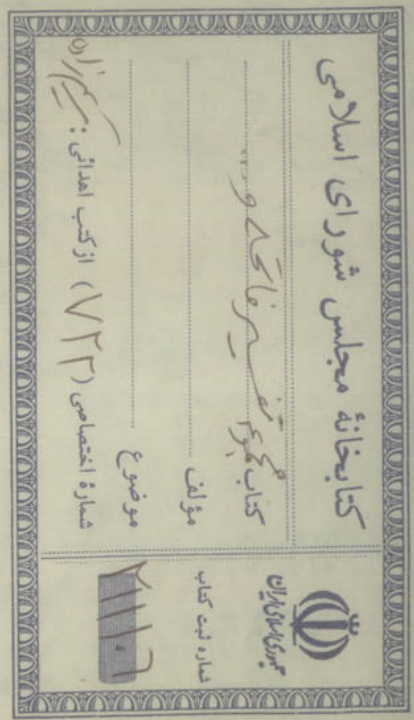 کتابخانهٔ مجلس شورای اسلامی
کتاب مجموعه تفسیر فاتحه و ...
مؤلف
موضوع
شمارهٔ اختصاصی (۷۲۲) از کتب اهدائی :
جمهوری اسلامی ایران
شماره ثبت کتاب